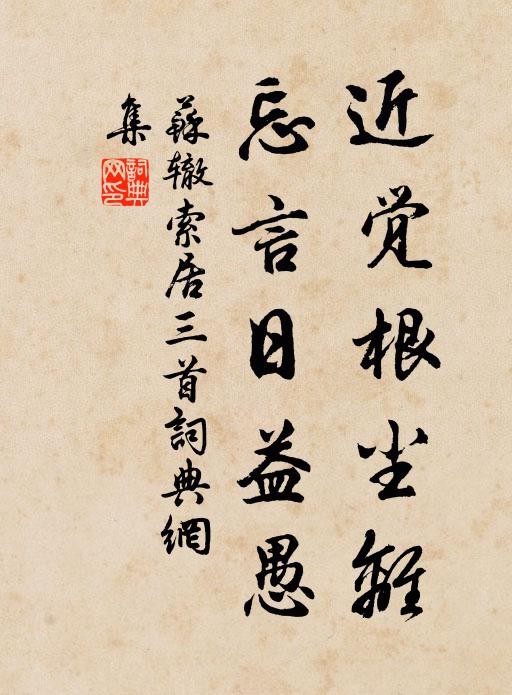 近觉根尘離
忘言日益愚
蘇辙索居三首詞典網
集
詞典
网印